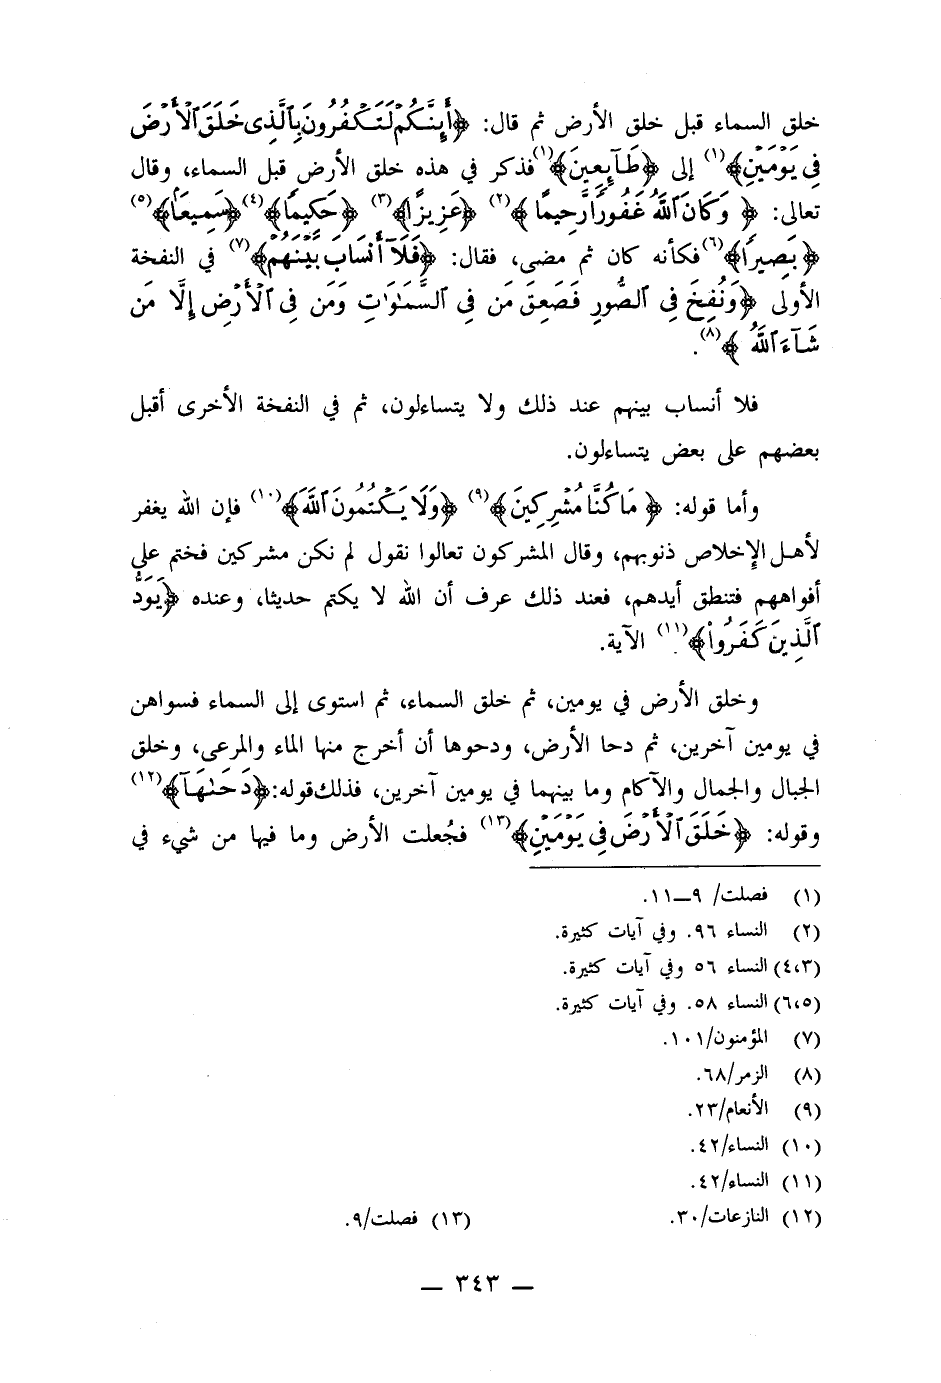 خلق السماء قبل خلق الأرض ثم قال: ﴿أَئِنَّكُمْ لَتَكْفُرُونَ بِٱلَّذِى خَلَقَ ٱلْأَرْضَ
فِى يَوْمَيْنِ﴾(١) إلى ﴿طَآئِعِينَ﴾(١) فذكر في هذه خلق الأرض قبل السماء، وقال
تعالى: ﴿وَكَانَ ٱللَّهُ غَفُورًا رَّحِيمًا﴾(٢) ﴿عَزِيزًا﴾(٣) ﴿حَكِيمًا﴾(٤) ﴿سَمِيعًا﴾(٥)
﴿بَصِيرًا﴾(٦) فكأنه كان ثم مضى، فقال: ﴿فَلَآ أَنسَابَ بَيْنَهُمْ﴾(٧) في النفخة
الأولى ﴿وَنُفِخَ فِى ٱلصُّورِ فَصَعِقَ مَن فِى ٱلسَّمَٰوَٰتِ وَمَن فِى ٱلْأَرْضِ إِلَّا مَن
شَآءَ ٱللَّهُ﴾(٨).
فلا أنساب بينهم عند ذلك ولا يتساءلون، ثم في النفخة الأخرى أقبل
بعضهم على بعض يتساءلون.
وأما قوله: ﴿مَا كُنَّا مُشْرِكِينَ﴾(٩) ﴿وَلَا يَكْتُمُونَ ٱللَّهَ﴾(١٠) فإن الله يغفر
لأهل الإخلاص ذنوبهم، وقال المشركون تعالوا نقول لم نكن مشركين فختم على
أفواههم فتنطق أيدهم، فعند ذلك عرف أن الله لا يكتم حديثا، وعنده ﴿يَوَدُّ
ٱلَّذِينَ كَفَرُوا۟﴾(١١) الآية.
وخلق الأرض في يومين، ثم خلق السماء، ثم استوى إلى السماء فسواهن
في يومين آخرين، ثم دحا الأرض، ودحوها أن أخرج منها الماء والمرعى، وخلق
الجبال والجمال والآكام وما بينهما في يومين آخرين، فذلك قوله: ﴿دَحَىٰهَآ﴾(١٢)
وقوله: ﴿خَلَقَ ٱلْأَرْضَ فِى يَوْمَيْنِ﴾(١٣) فجُعلت الأرض وما فيها من شيء في
(١) فصلت/ ٩ــ١١.
(٢) النساء ٩٦. وفي آيات كثيرة.
(٤،٣) النساء ٥٦ وفي آيات كثيرة.
(٦،٥) النساء ٥٨. وفي آيات كثيرة.
(٧) المؤمنون/١٠١.
(٨) الزمر/٦٨.
(٩) الأنعام/٢٣.
(١٠) النساء/٤٢.
(١١) النساء/٤٢.
(١٢) النازعات/٣٠. (١٣) فصلت/٩.
— ٣٤٣ —